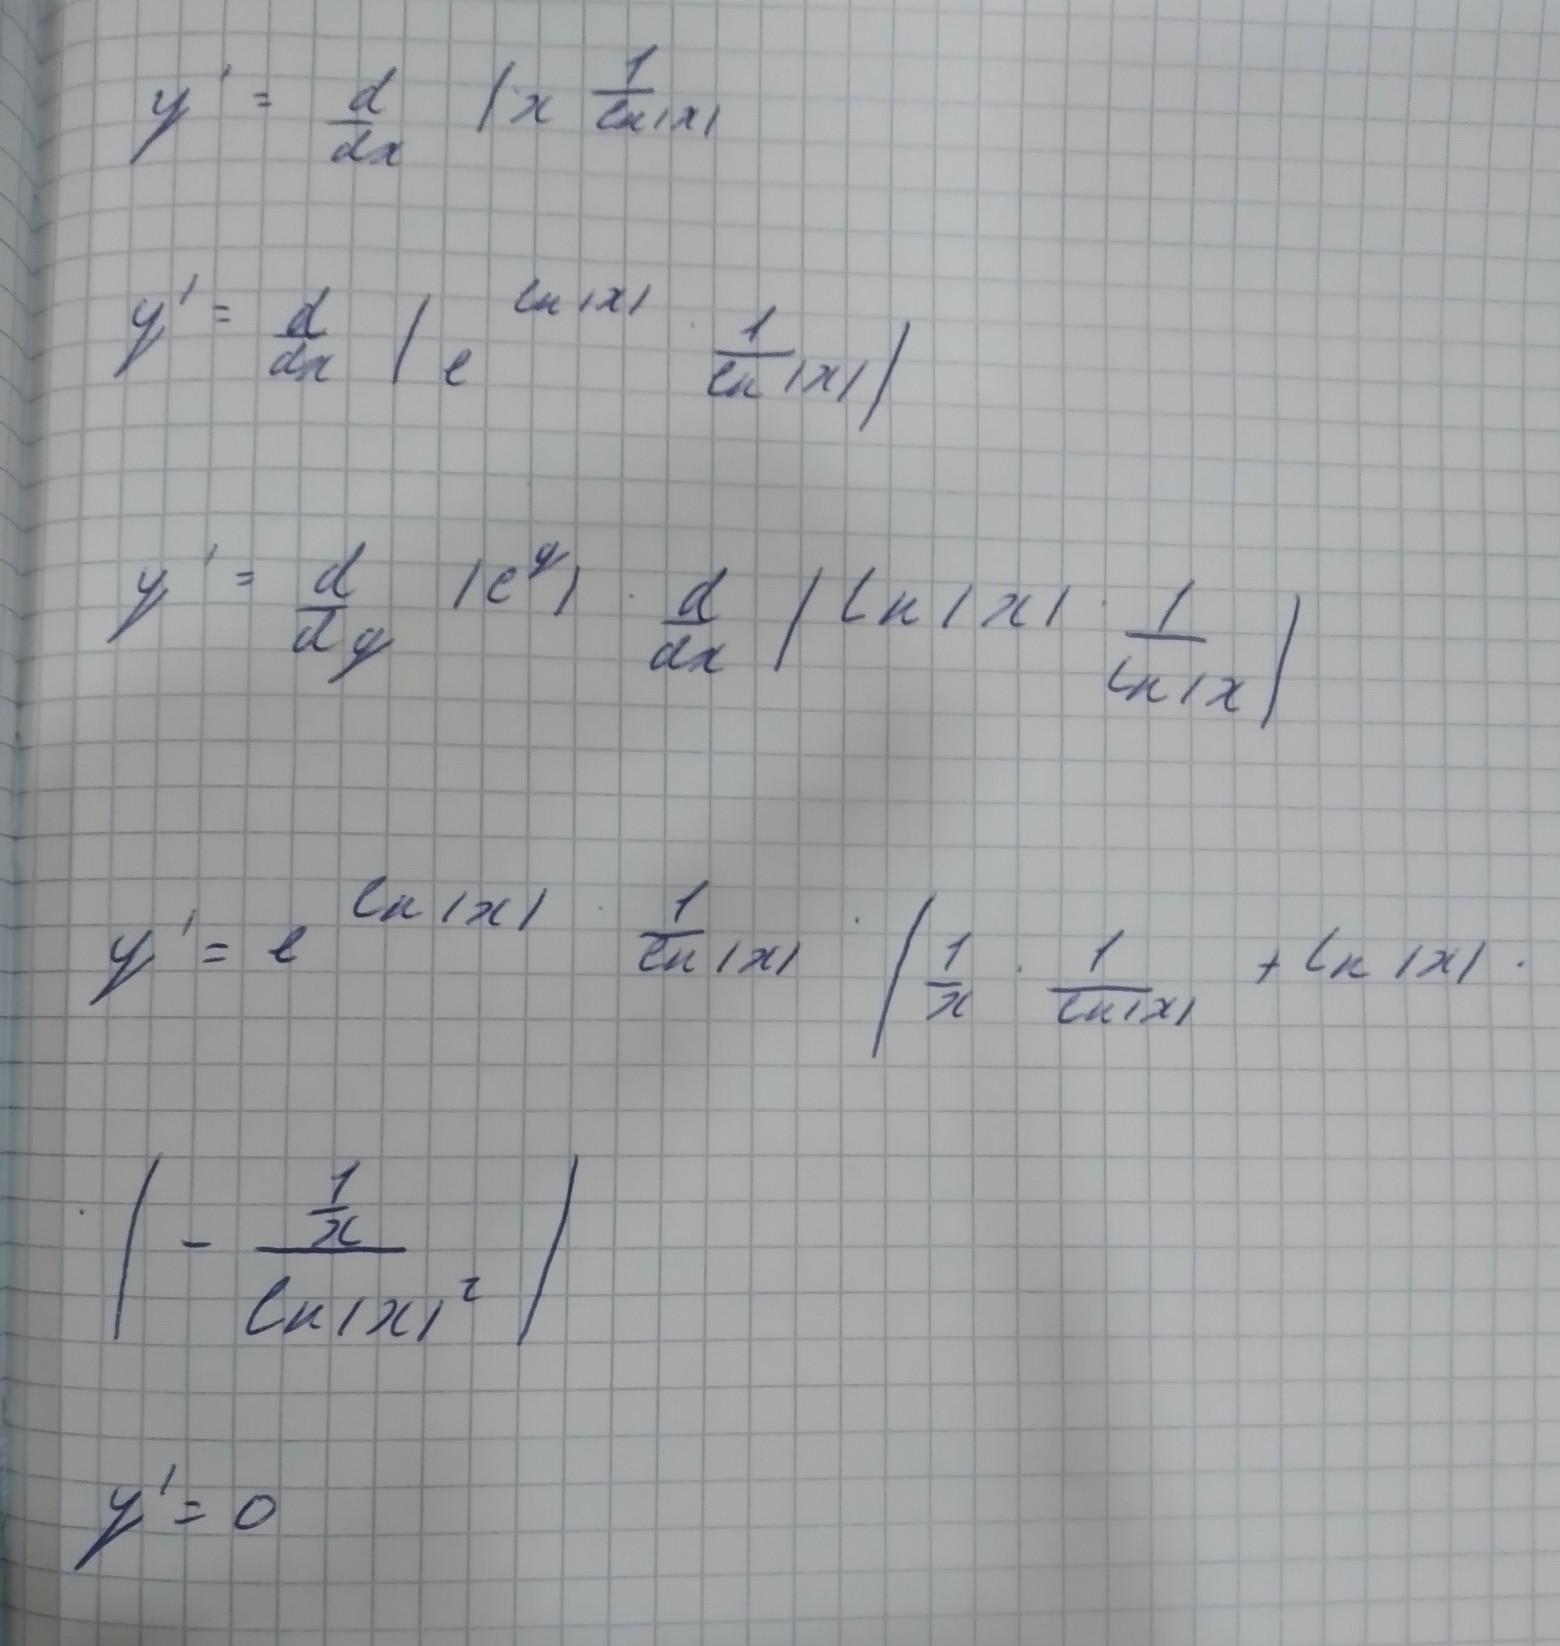 y' = d/dx (x 1/ln(x)
y' = d/dx (e ln(x) · 1/ln(x))
y' = d/dg (e^g) · d/dx (ln(x) · 1/ln(x)
y' = e ln(x) · 1/ln(x) · (1/x · 1/ln(x) + ln(x) ·
· (- 1/x / ln(x)²)
y' = 0